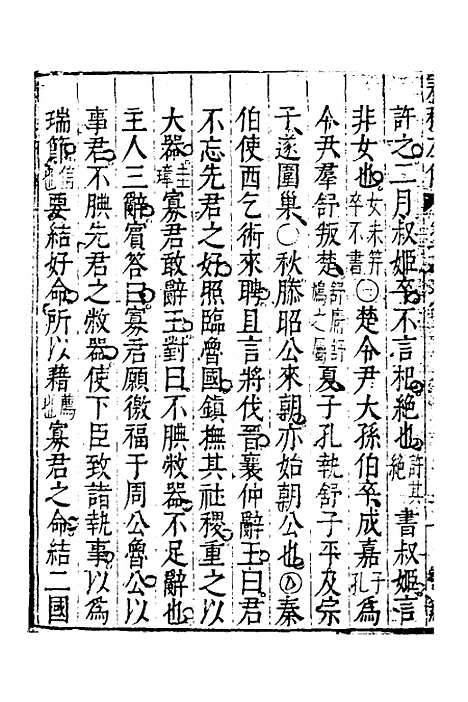 許之二月叔姬卒不言杞絕也許其絕書叔姬言
非女也女未笄卒不書㊀楚令尹大孫伯卒成嘉子孔爲
令尹羣舒叛楚舒庸舒鳩之屬夏子孔執舒子平及宗
子遂圍巢○秋滕昭公來朝亦始朝公也秦
伯使西乞術來聘且言將伐晉襄仲辭玉曰君
不忘先君之好照臨魯國鎮撫其社稷重之以
大器圭璋寡君敢辭玉對曰不腆敝器不足辭也
主人三辭賓答曰寡君願徼福于周公魯公以
事君不腆先君之敝器使下臣致諸執事以爲
瑞節信也要結好命所以藉薦也寡君之命結二國